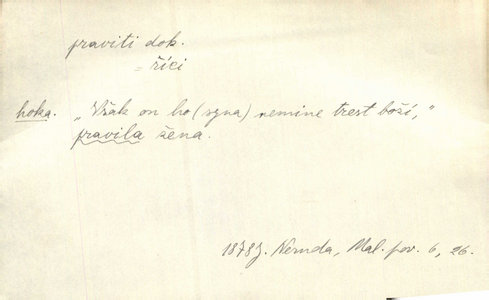 praviti dok.
= říci
hoka. „Však on ho (syna) nemine trest boží,"
pravila žena.
1878 J. Neruda, Mal. pov. 6, 26.